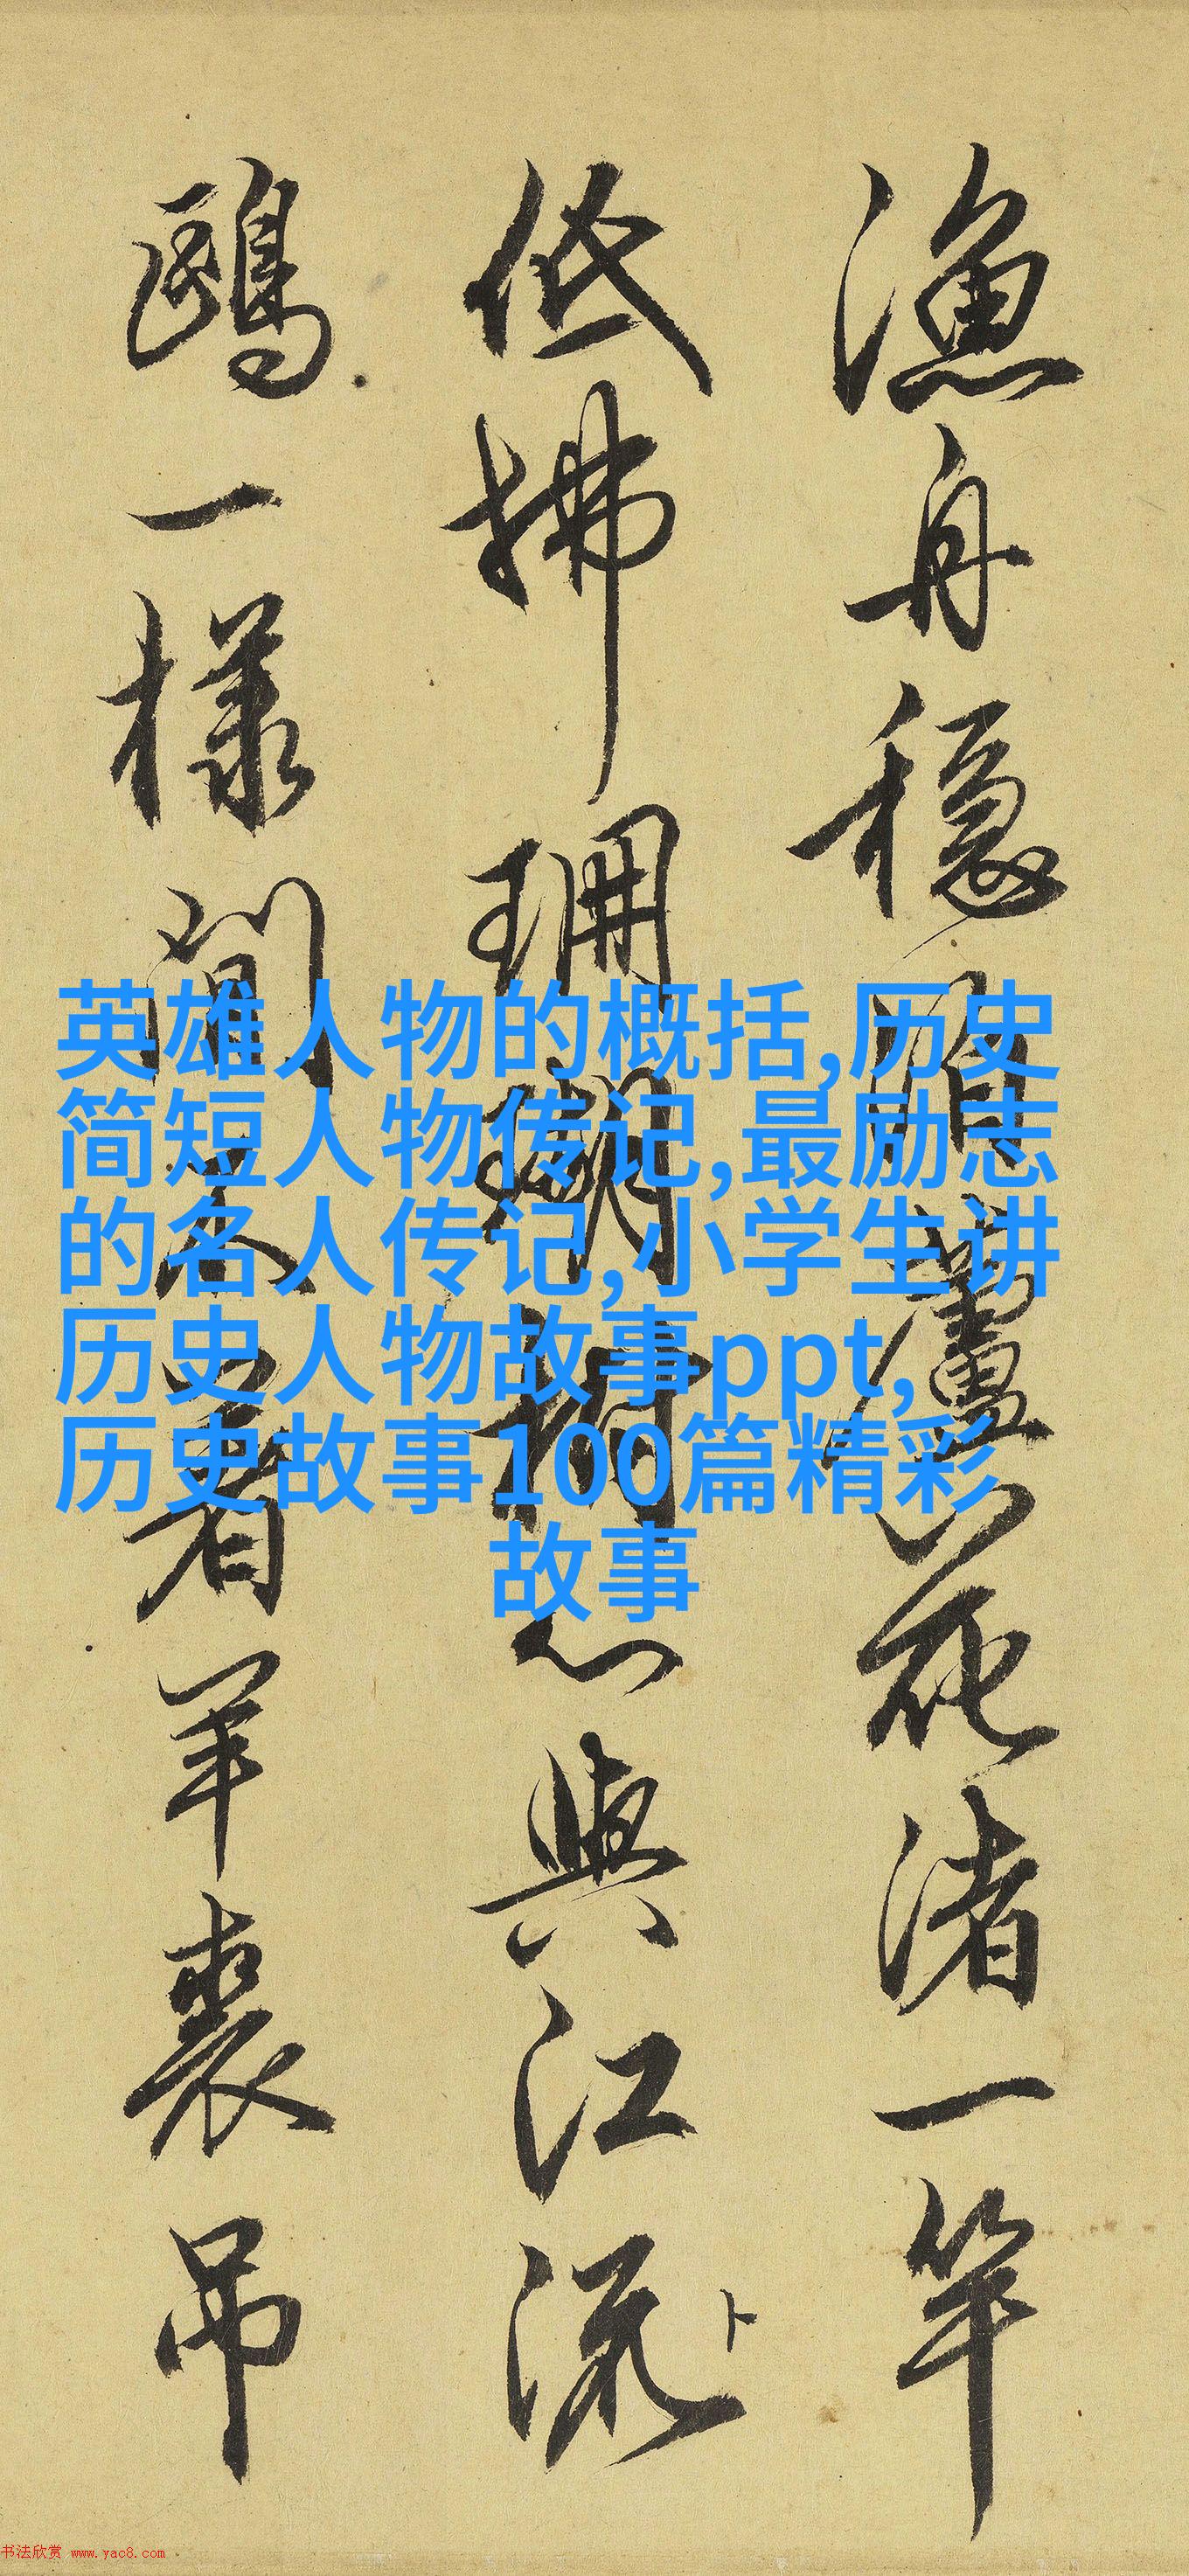 漁舟穩泊蘆花渚一竿
低拂珊瑚樹心與江流卜
鷗一樣閒不著羊裘弔
英雄人物的概括,历史
简短人物传记,最励志
的名人传记,小学生讲
历史人物故事ppt,
历史故事100篇精彩
故事
书法欣赏 www.yac8.com